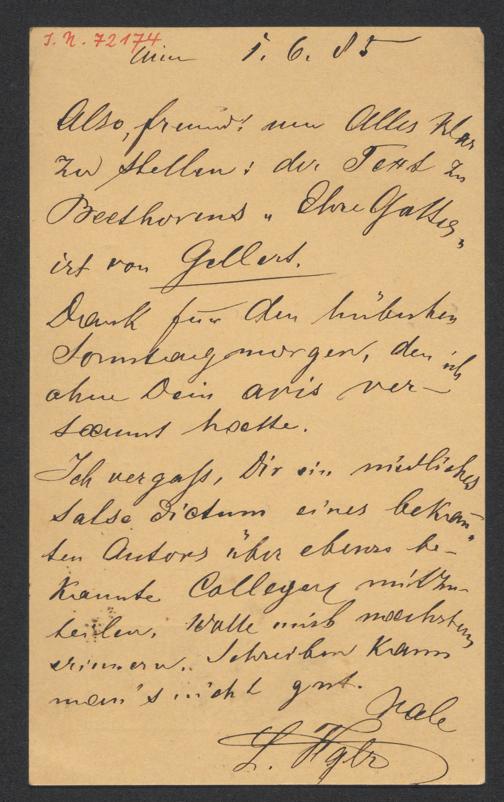 J. N. 72174
Wien 1. 6. 85
Also, freund! um Alles klar
zu stellen: der Text zu
Beethovens „Ehre Gottes"
ist von Gellert.
Dank für den hübschen
Sonntagmorgen, den ich
ohne Dein avis ver-
saeumt haette.
Ich vergaß, Dir ein niedliches
salse dictum eines bekann-
ten Autors über ebenso be-
kannte Collegen mitzu-
teilen. Wolle mich nächstens
erinnern. Schreiben kann
man's nicht gut.
Vale